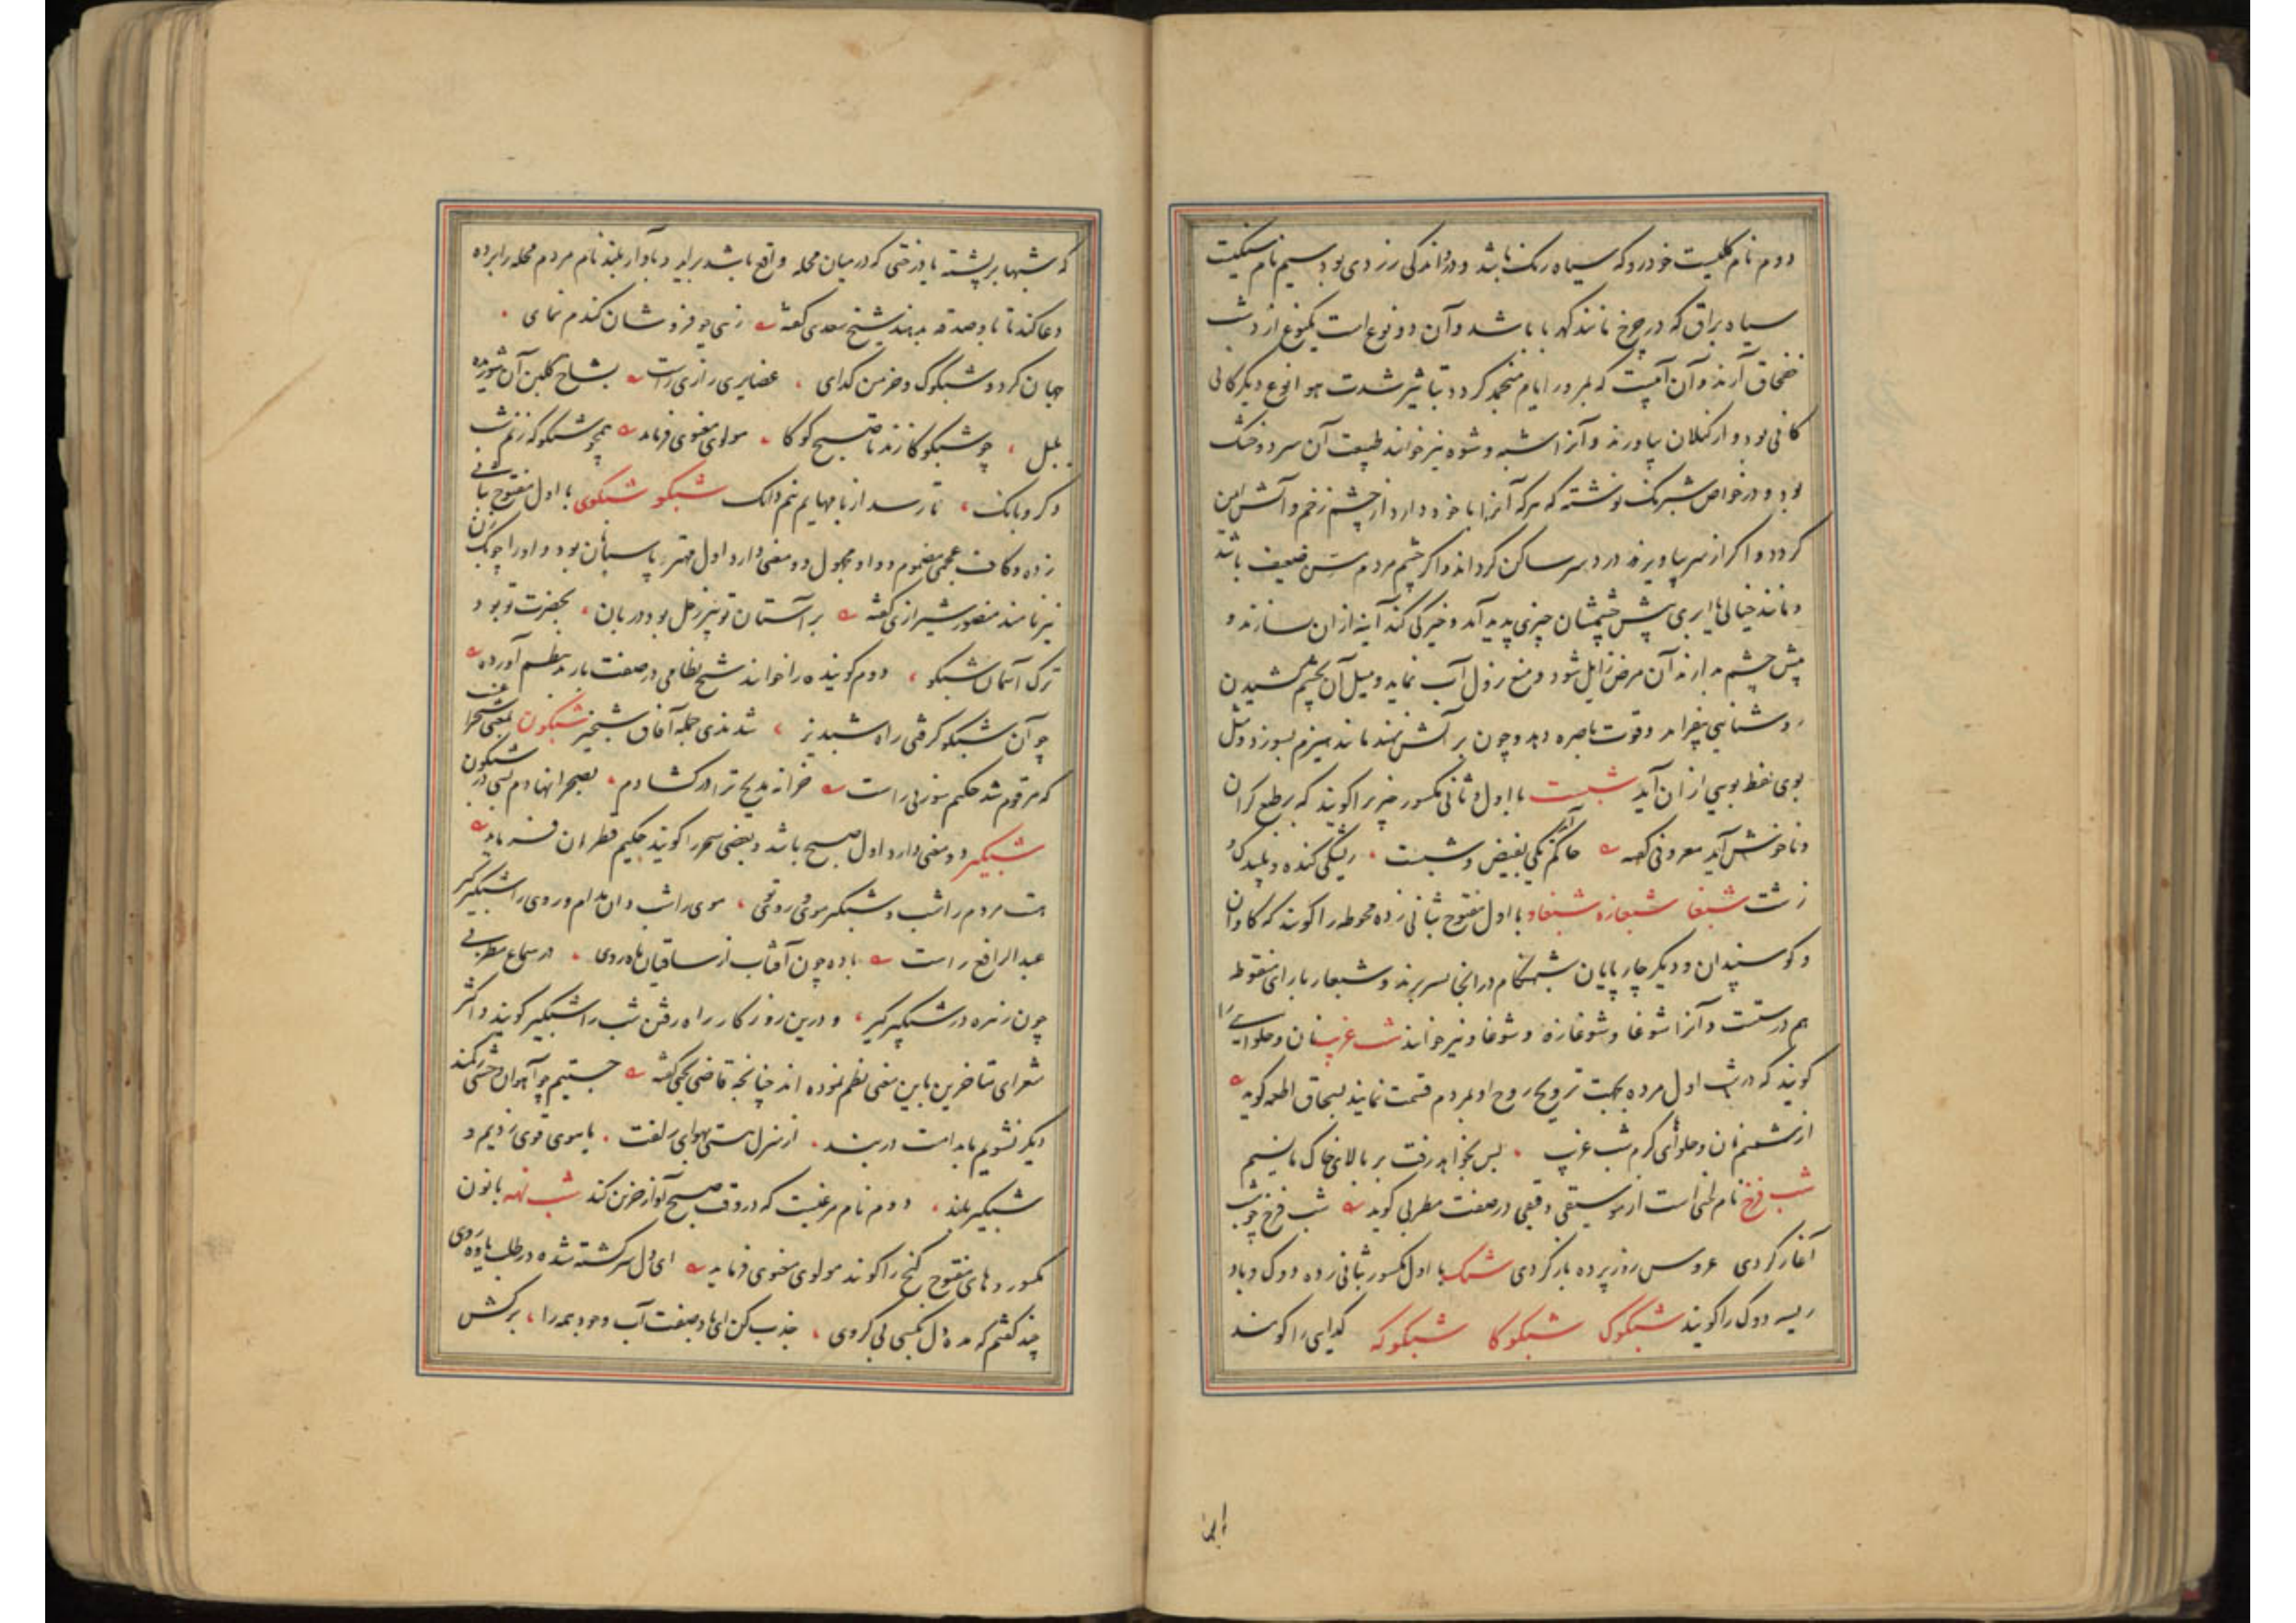 دوم نام گلیست خودرو که سیاه رنک باشد و در واندکی زردی بود سیم نام سنکیست
سیاه براق که در چرخ مانند کهربا باشد و آن دو نوع است یکنوع از دشت
خفچاق آرند و آن آبیست که بمرور ایام منجمد کردد بتاثیر شدت هوا نوع دیکر کانی
کانی بود و از کیلان بیاورند و آنرا شبه و شوه نیز خوانند طبیعت آن سرد و خشک
بود و در خواص شبرنک نوشته که هر که آنرا با خود دارد از چشم زخم و آتش ایمن
کردد و اکر از سر بیاویزند درد سر ساکن کرداند و اکر چشم مردم مسن ضعیف باشد
و مانند خیالی یا ابری پیش چشمشان چیزی پدید آمد و خیرکی کند آینه از آن سازند و
پیش چشم بدارند آن مرض زایل شود و منع نزول آب نماید و میل آن بچشم کشیدن
روشنایی بیفزاید و قوت باصره دهد و چون بر آتش نهند مانند هیزم بسوزد و مثل
بوی نفط بویی از آن آید شبست با اول و ثانی مکسور چیزیرا کویند که بر طبع کران
و ناخوش آید معروفی کفته حاکم آمد یکی بغیض و شبست ریشکی کنده و پلیدک و
زشت شبغا شبغازه شبغاو با اول مفتوح بثانی زده محوطه را کویند که کاوان
و کوسپندان و دیکر چارپایان شبهنکام در آنجا بسر برند و شبغاز با زای منقوطه
هم درستست و آنرا شوغا و شوغازه و شوغاو نیز خوانند شب غریب نان و حلوایی را
کویند که در شب اول مرده بجهت ترویح روح او بمردم قسمت نمایند بسحاق اطعمه کوید
از ششم نان و حلوای کرم شب غریب بس بخواهد رفت بر بالای خاک ما نسیم
شب فرخ نام لحنی است از موسیقی وقیعی در صفت مطربی کوید شب فرخ چو شب
آغاز کردی عروس روز پرده باز کردی شبک با اول مکسور بثانی زده دوک و باد
ریسه دوک را کویند شبکوک شبکوکا شبکوکه کدایی را کویند
که شبها بر پشته یا درختی که در میان محله واقع باشد براید و باواز بلند نام مردم محله را برده
دعا کند تا باو صدقه بدهند شیخ سعدی کفته زهی جو فروشان کندم نمای
جهان کرد و شبکوک و خرمن کدای غضایری رازی راست بشاخ کلبن آن شوریده
بلبل چو شبکوکا زند تا صبح کوکا مولوی معنوی فرماید همچو شبکوکه زنم شب
ذکر و بانک تا رسد از بامهایم نیم دانک شبکو شبکوی با اول مفتوح بثانی
زده و کاف عجمی مضموم و واو مجهول دو معنی دارد اول مهتر پاسبانان بود و او را چوبک زن
نیز نامند منصور شیرازی کفته بر آستان تو پیر زحل بود دربان بحضرت تو بود
ترک آسمان شبکو دوم کوینده را خوانند شیخ نظامی در صفت باربد بنظم آورده
چو آن شبکو کرفتی راه شبدیز شدندی جمله آفاق شبخیز شبکون بمعنی شبچراغست
که مرقوم شد حکیم سوزنی راست خزانه مدیح ترا در کشادم بصحرا نهادم بسی در شبکون
شبکیر دو معنی دارد اول صبح باشد و بعضی سحر را کویند حکیم قطران فرماید
هست مردم را شب و شبکیر موی و روی موی را شب دان مدام و روی را شبکیر کیر
عبدالرافع راست باده چون آفتاب از ساقیان ماه روی در سماع مطربی
چون زهره در شبکیر کیر و درین روزکار راه رفتن شب را شبکیر کویند و اکثر
شعرای متاخرین باین معنی نظم نموده اند چنانچه قاضی یحیی کفته جستیم چو آهوان وحشی ز کمند
دیکر نشویم با ندامت دربند از منزل هستی بهوای زلفت تا سوی تو می زدیم و
شبکیر بلند دوم نام مرغیست که در وقت صبح آواز حزین کند شب نهه با نون
مکسور و های مفتوح کنج را کویند مولوی معنوی فرماید ای دل سرکشته شده در طلب یاوه روی
چند کفتم که مده دل بکسی بی کروی جذب کن ای باد صفت آب وجود همه را برکش
این